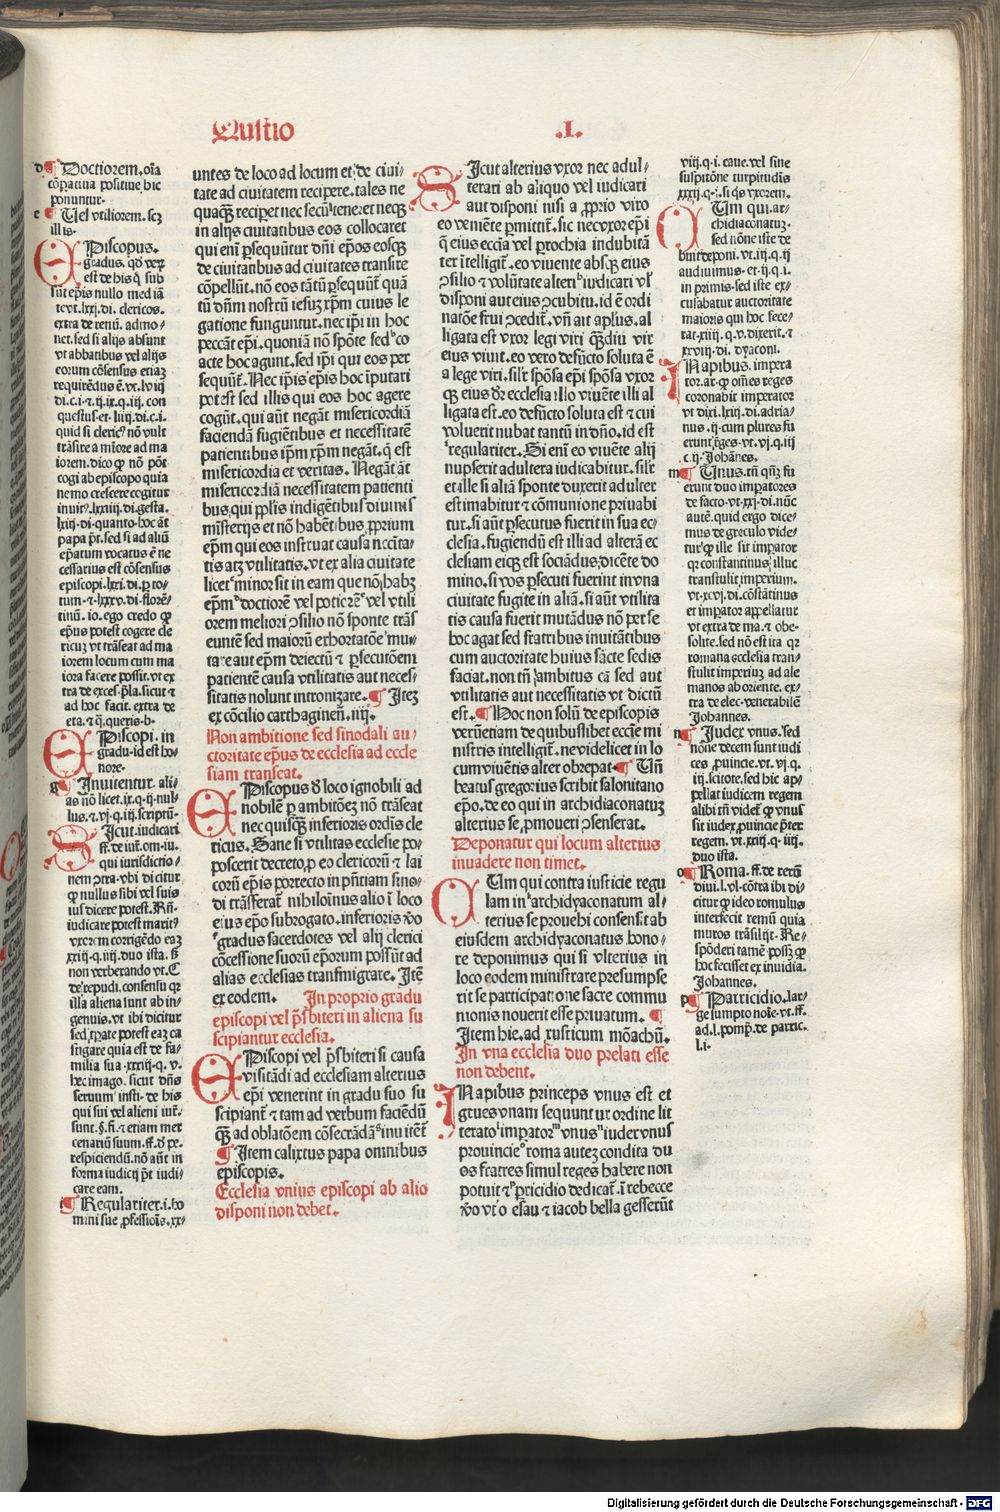 Questio .I.
d ¶ Doctiorem. oĩa
cōpatiua positiue hic
ponuntur.
e ¶ Uel vtiliorem. scz
illis.
EPiscopus.
gradus. qđ veꝝ
est de his q̄ sub
sūt eṗis nullo mediā
te vt. lxxj. di. clericos.
extra de renū. admo-
net. sed si alijs absunt
vt abbatibus vel alijs
eorum cōsensus etiaz
requirēdus ē. vt. lv iij
di. c. i. ⁊. ij. ix. q. iij. con
questus. et. liiij. di. c. i.
quid si cleric⁹ nō vult
trāsire a minore ad ma
iorem. dico ꝙ nō pōt
cogi ab episcopo quia
nemo crescere cogitur
inuit⁹. lxxiiij. di. gesta.
lxij. di. quanto. hoc āt
papa p̄t. sed si ad aliū
eṗatum vocatus ē ne
cessarius est cōsensus
episcopi. lxxi. di. ꝑ to-
tum. ⁊. lxxv. di. florē-
tinū. io. ego credo ꝙ
eṗus potest cogere cle
ricuʒ vt trāseat ad ma
iorem locum cum ma
iora facere possit. vt ex
tra de exces. p̄la. sicut ⁊
ad hoc facit. extra de
eta. ⁊ q̄. queris. b.
EPiscopi. in
gradu. id est ho-
nore.
g ¶ Inuitentur. ali-
as nō licet. ix. q. ij. nul-
lus. ⁊. vj. q. iij. scriptū.
SIcut. iudicari
ff. de iuř. om. iu.
qui iurisdictio-
nem ꝯtra. vbi dicitur
ꝙ nullus sibi vel suis
ius dicere potest. Rñ.
iudicare potest marit⁹
vxorem corrigēdo eaz
xxiij. q. iiij. duo ista. ß
non verberando vt. C
de repudi. consensu qꝛ
illa aliena sunt ab in-
genuis. vt ibi dicitur
sed tꝑate potest eaz ca
stigare quia est de fa-
milia sua. xxxiij. q. v.
hec imago. sicut dn̄s
seruum insti. de his
qui sui vel alieni iuř.
sunt. §. fi. ⁊ etiam mer
cenariū suum. ff. đ pe.
respiciendū. nō aūt in
forma iudicij p̄t iudi-
care eam.
¶ Regulariter. i. ho
mini sue ꝓfessiōis. xx-
untes de loco ad locum et de ciui-
tate ad ciuitatem recipere. tales ne
quaꝙ̄ recipet nec secū teneret neqꝫ
in alijs ciuitatibus eos collocaret
qui enī ꝑsequūtur dn̄i eṗos eosqꝫ
de ciuitatibus ad ciuitates transire
cōpellūt. nō eos tātū ꝑsequūt̄ quā
tū dn̄m nostrū iesuʒ xp̄m cuius le
gatione funguntur. nec ip̄i in hoc
peccāt eṗi. quoniā nō spōte sed co
acte hoc agunt. sed ip̄i qui eos per
sequūt̄. Nec ip̄is eṗis hoc īputari
potest sed illis qui eos hoc agere
cogūt. qui aūt negāt misericordiā
faciendā fugiētibus et necessitatē
patientibus ip̄m xp̄m negāt. q̄ est
misericordia et veritas. Negāt āt
misericordiā necessitatem patienti
bus. qui pp̄lis indigētibus diuinis
mīsterijs et nō habētibus ꝓprium
eṗm qui eos instruat causa necc̄ita-
tis atqꝫ vtilitatis. vt ex alia ciuitate
licet minor sit in eam que nō habʒ
eṗm doctiorē vel potiorē vel vtili
orem meliori ꝯsilio nō sponte trās
euntē sed maiorū exhortatōe mu-
tare aut eṗm deiectū ⁊ ꝑsecutōem
patientē causa vtilitatis aut neces-
sitatis nolunt intronizare. ¶ Iteʒ
ex cōcilio carthaginen̄. iiij.
Non ambitione sed sinodali au-
ctoritate eṗus de ecclesia ad eccle
siam transeat.
EPiscopus đ loco ignobili ad
nobilē ꝑ ambitōeʒ nō trāseat
nec quisꝙ̄ inferioris ordīs cle
ricus. Sane si vtilitas ecclesie po-
poscerit decreto. ꝑ eo clericorū ⁊ lai
corū eṗis porrecto in p̄ntiam sino-
di trāsferat̄ nihilominus alio ī loco
eius eṗo subrogato. inferioris v̄o
gradus sacerdotes vel alij clerici
cōcessione suorū eṗorum possūt ad
alias ecclesias transmigrare. Itē
ex eodem. In proprio gradu
episcopi vel p̄sbiteri in aliena su
scipiantur ecclesia.
EPiscopi vel p̄sbiteri si causa
visitādi ad ecclesiam alterius
eṗi venerint in gradu suo su
scipiant̄ ⁊ tam ad verbum faciēdū
ꝙ̄ ad oblatōem cōsecrādā inuitēt̄
¶ Item calixtus papa omnibus
episcopis.
Ecclesia vnius episcopi ab alio
disponi non debet.
SIcut alterius vxor nec adul-
terari ab aliquo vel iudicari
aut disponi nisi a ꝓprio viro
eo veniēte ꝑmittit̄. sic nec vxor eṗi
q̄ eius ecc̄ia vel ꝑrochia indubitā
ter ītelligit̄. eo viuente absqꝫ eius
ꝯsilio ⁊ volūtate alteri iudicari vl̓
disponi aut eius ꝯcubitu. id ē ordi
natōe frui ꝯcedit̄. vn̄ ait ap̄lus. al
ligata est vxor legi viri ꝙ̄diu vir
eius viuit. eo vero defūcto soluta ē
a lege viri. silr̄ spōsa eṗi spōsa vxor
qꝫ eius dr̄ ecclesia illo viuēte illi al
ligata est. eo defūcto soluta est ⁊ cui
voluerit nubat tantū in dn̄o. id est
regulariter. Si enī eo viuēte alij
nupserit adultera iudicabitur. silr̄
et ille si aliā sponte duxerit adulter
estimabitur ⁊ cōmunione priuabi
tur. si aūt ꝑsecutus fuerit in sua ec-
clesia. fugiendū est illi ad alterā ec
clesiam eiqꝫ est sociādus. dicēte do
mino. si vos ꝑsecuti fuerint in vna
ciuitate fugite in aliā. si aūt vtilita
tis causa fuerit mutādus nō per se
hoc agat sed fratribus inuitātibus
cum auctoritate huius sācte sedis
faciat. non tn̄ ambitus cā sed aut
vtilitatis aut necessitatis vt dictū
est. ¶ Hoc non solū de episcopis
verūetiam de quibuslibet ecc̄ie mi
nistris intelligit̄. ne videlicet in lo
cum viuētis alter obrepat. ¶ Un̄
beatus gregorius scribit salonitano
eṗo. de eo qui in archidiaconatuʒ
alterius se ꝓmoueri ꝯsenserat.
Deponatur qui locum alterius
inuadere non timet.
CUm qui contra iusticie regu
lam in archidyaconatum al-
terius se prouehi consensit ab
eiusdem archidyaconatus hono-
re deponimus qui si vlterius in
loco eodem ministrare presumpse
rit se participatione sacre commu
nionis nouerit esse priuatum. ¶
Item hie. ad rusticum mōachū.
In vna ecclesia duo prelati esse
non debent.
INapibus princeps vnus est et
grues vnam sequuntur ordine lit
terato imꝑator vnus iudex vnus
prouincie roma autez condita du
os fratres simul reges habere non
potuit ⁊ ꝑricidio dedicat̄. ī rebecce
v̄o vt̓o esau ⁊ iacob bella gesserūt
viij. q. i. caue. vel sine
suspitōne turpitudīs
xxxij. q. i. si q̄s vxorem.
CUm qui. ar-
chidiaconatuʒ.
sed nōne iste de
buit deponi. vt. iij. q. ij
audiuimus. et. ij. q. i.
in primis. sed iste ex-
cusabatur auctoritate
maioris qui hoc fece-
rat. xiij. q. v. dixerit. ⁊
xxviij. di. dyaconi.
INapibus. impera
tor. ar. ꝙ om̄es reges
coronabit imperator
vt dixi. lxiij. di. adria-
nus. ij. cum plures fu
erunt ꝫges. vt. vj. q. iij
c. ij. Johānes.
m ¶ Unus. tn̄ qn̄qꝫ fu
erunt duo imṗatores
de facto. vt. xxj. di. nūc
autē. quid ergo dice-
mus de greculo vide-
tur ꝙ ille sit imṗator
qꝛ constantinus illuc
transtulit imperium.
vt. xcvj. di. cōstātinus
et imṗator appellatur
vt extra de ma. ⁊ obe-
solite. sed nō est ita qꝛ
romana ecclesia tran-
stulit imperiuʒ ad ale
manos ab oriente. ex-
tra de elec. venerabilē
Johannes.
n ¶ Judex vnus. sed
nōne decem sunt iudi
ces ꝓuincie. vt. vj. q.
iij. scitote. sed hic ap-
pellat iudicem regem
alibi tn̄ videt̄ ꝙ vnus
sit iudex ꝓuincie p̄ter
regem. vt. xxij. q. iiij.
duo ista.
o ¶ Roma. ff. de rerū
diui. l. vl. cōtra ibi di-
citur ꝙ ideo romulus
interfecit remū quia
muros trāsilijt. Re-
spōderi tamē possʒ ꝙ
hoc fecisset ex inuidia.
Johannes.
p ¶ Parricidio. lar-
ge sumpto noīe. vt. ff.
ad. l. pomp̄. de parric.
l. i.
Digitalisierung gefördert durch die Deutsche Forschungsgemeinschaft - DFG